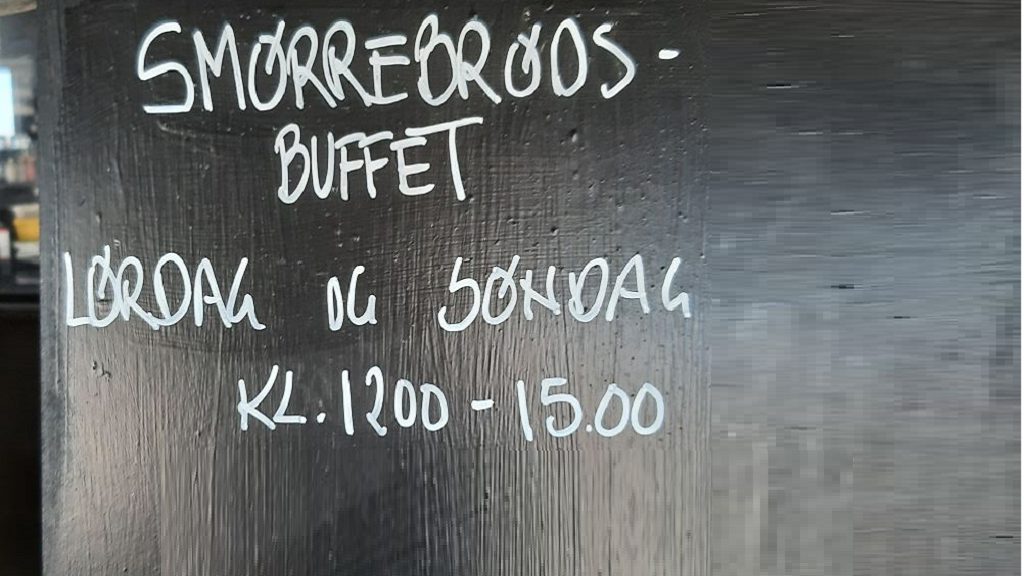 SMØRREBRØDS-
BUFFET
LØRDAG OG SØNDAG
KL. 1200 - 15.00